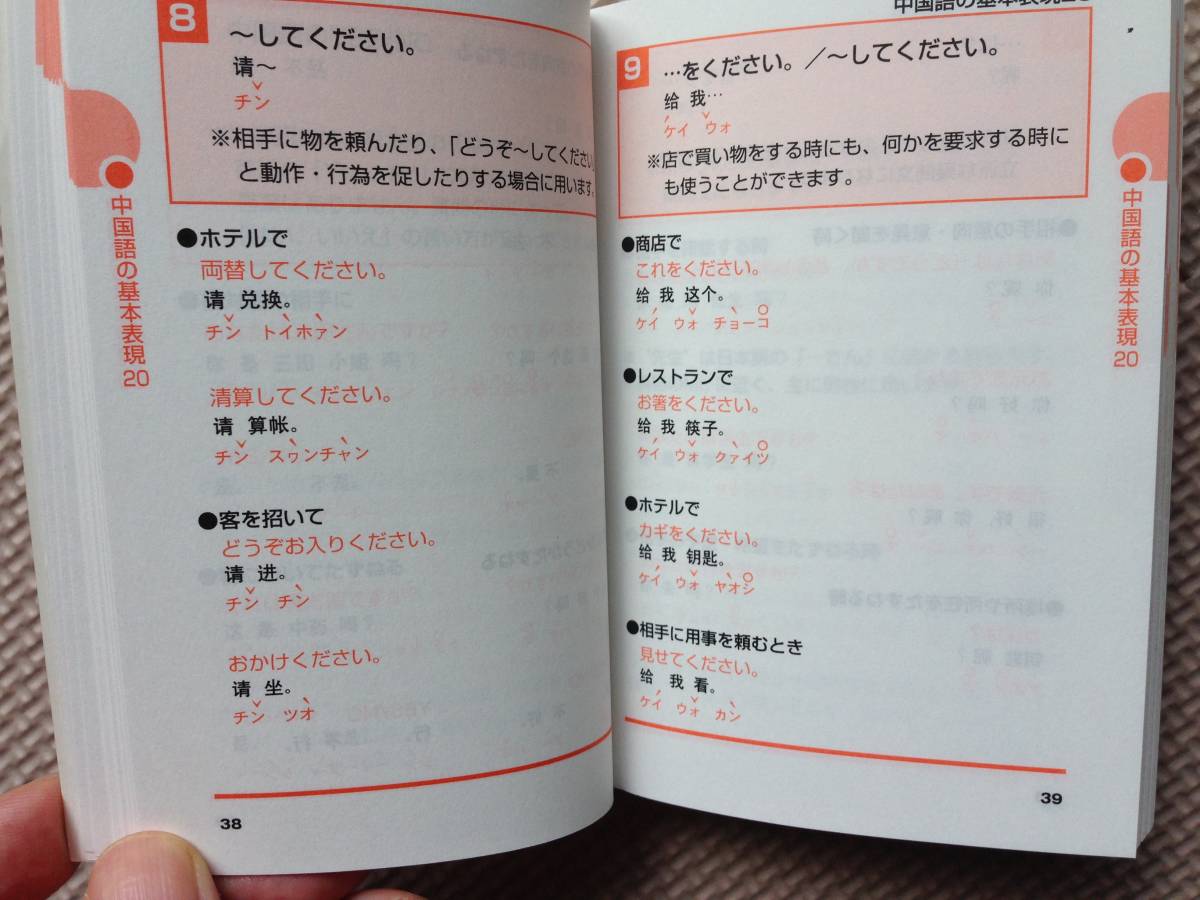 8
〜してください。
请〜
チン
※相手に物を頼んだり、「どうぞ〜してください」
と動作・行為を促したりする場合に用います。
●ホテルで
両替してください。
请 兑换。
チン トイホァン
清算してください。
请 算帐。
チン スゥンチャン
●客を招いて
どうぞお入りください。
请 进。
チン チン
おかけください。
请 坐。
チン ツオ
38
中国語の基本表現20
中国語の基本表現20
9
…をください。／〜してください。
给 我…
ケイ ウォ
※店で買い物をする時にも、何かを要求する時に
も使うことができます。
●商店で
これをください。
给 我 这个。
ケイ ウォ チョーコ
●レストランで
お箸をください。
给 我 筷子。
ケイ ウォ クァイツ
●ホテルで
カギをください。
给 我 钥匙。
ケイ ウォ ヤオシ
●相手に用事を頼むとき
見せてください。
给 我 看。
ケイ ウォ カン
39
中国語の基本表現20